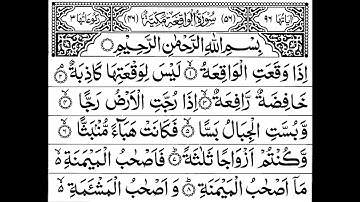 اٰیَاتُهَا ٩٦ (٥٦) سُوْرَةُ الْوَاقِعَةِ مَكِّیَّةٌ (٤٦) رُكُوْعَاتُهَا ٣
بِسْمِ اللهِ الرَّحْمٰنِ الرَّحِیْمِ
اِذَا وَقَعَتِ الْوَاقِعَةُ ۙ لَیْسَ لِوَقْعَتِهَا كَاذِبَةٌ ۘ
خَافِضَةٌ رَّافِعَةٌ ۙ اِذَا رُجَّتِ الْاَرْضُ رَجًّا ۙ
وَّ بُسَّتِ الْجِبَالُ بَسًّا ۙ فَكَانَتْ هَبَآءً مُّنْۢبَثًّا ۙ
وَّ كُنْتُمْ اَزْوَاجًا ثَلٰثَةً ؕ فَاَصْحٰبُ الْمَیْمَنَةِ ۙ
مَاۤ اَصْحٰبُ الْمَیْمَنَةِ ؕ وَ اَصْحٰبُ الْمَشْـَٔمَةِ ۙ